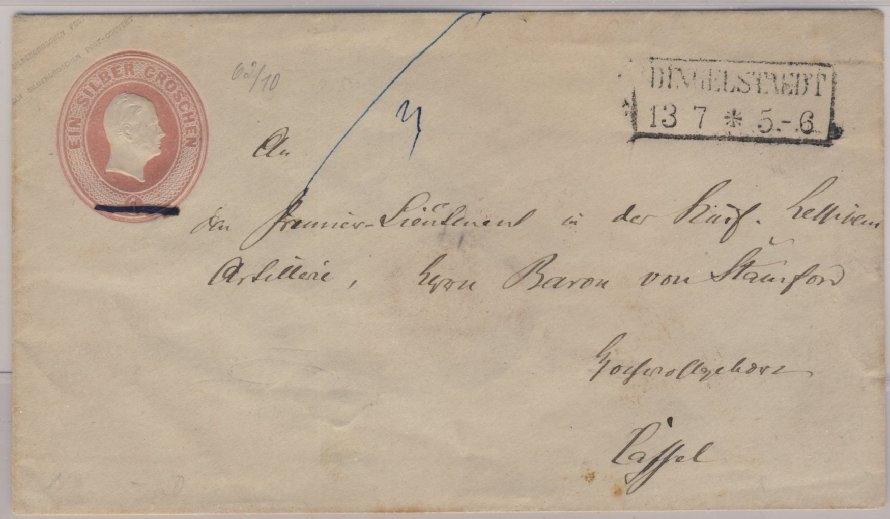 EIN SILBER GROSCHEN
63/10
3
DINGELSTAEDT
13 7 * 5.-6
An
den Premier-Lieutenant in der Kurf. Hessischen
Artillerie, Herrn Baron von Stamford
Hochwohlgeboren
Cassel